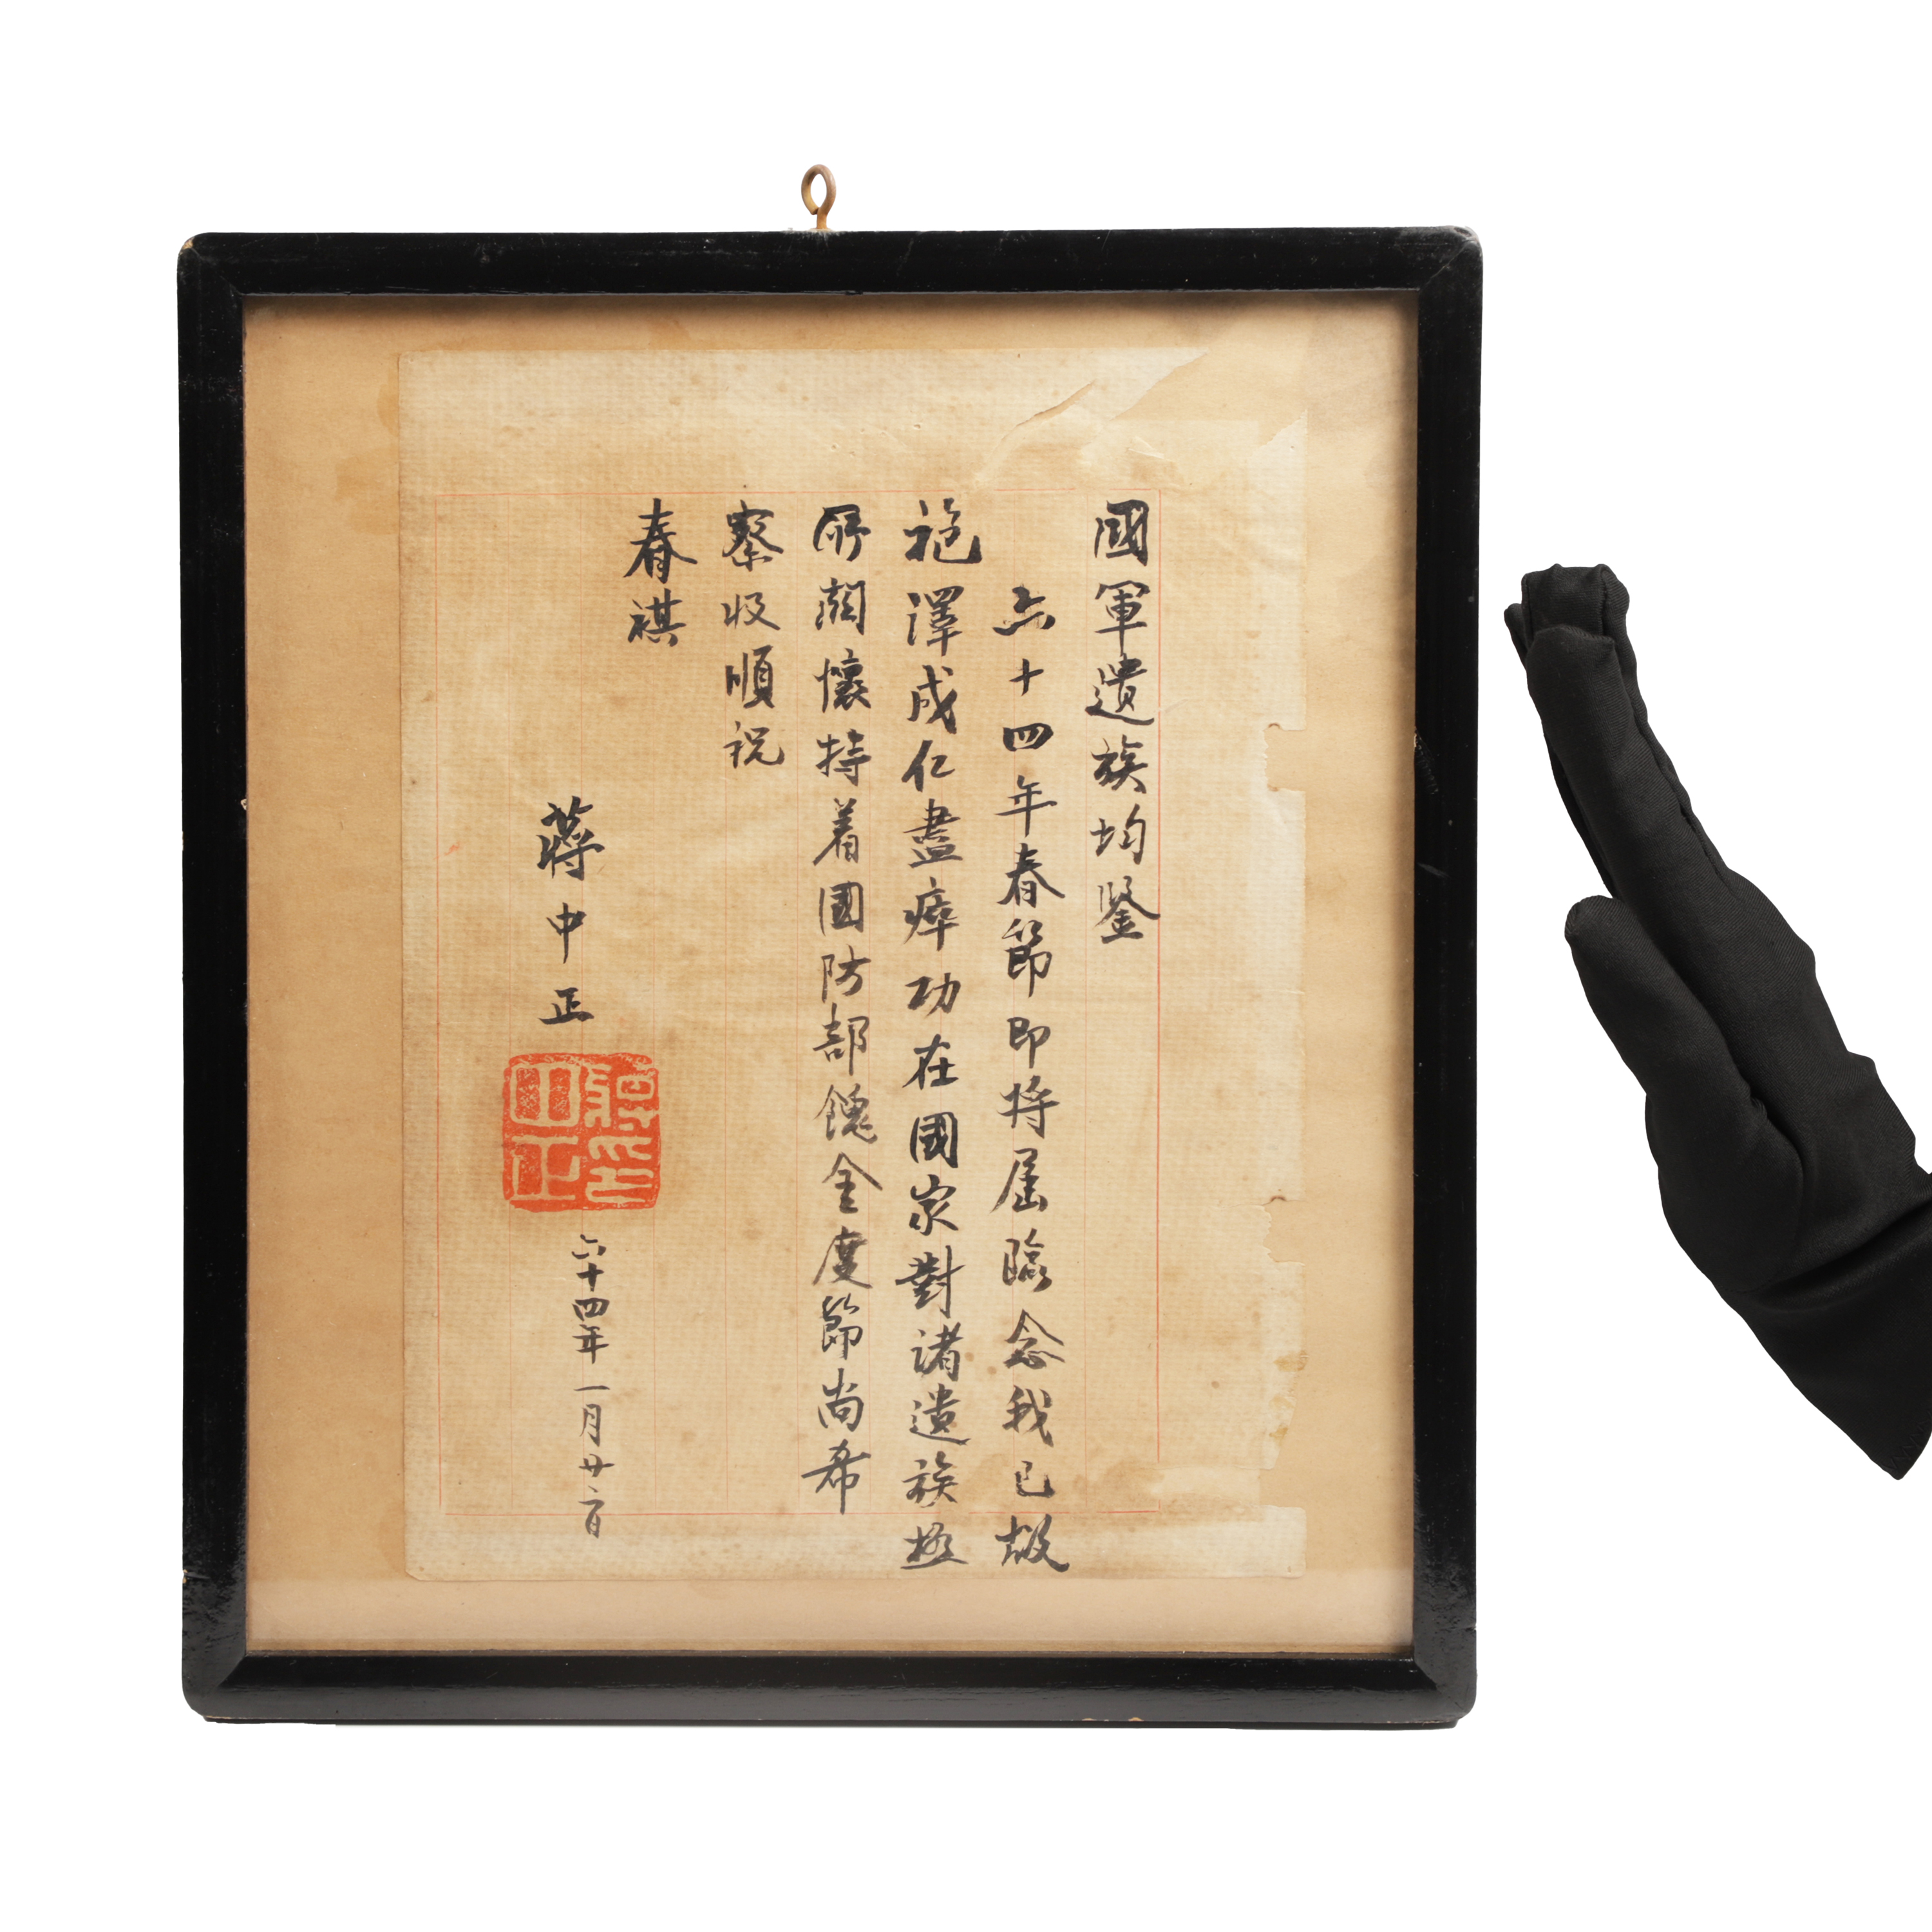 國軍遺族均鑒
六十四年春節即將屆臨念我已故
袍澤成仁盡瘁功在國家對諸遺族極
所關懷特着國防部餽金度節尚希
察收順祝
春祺
蔣中正
蔣中正印
六十四年一月廿二日